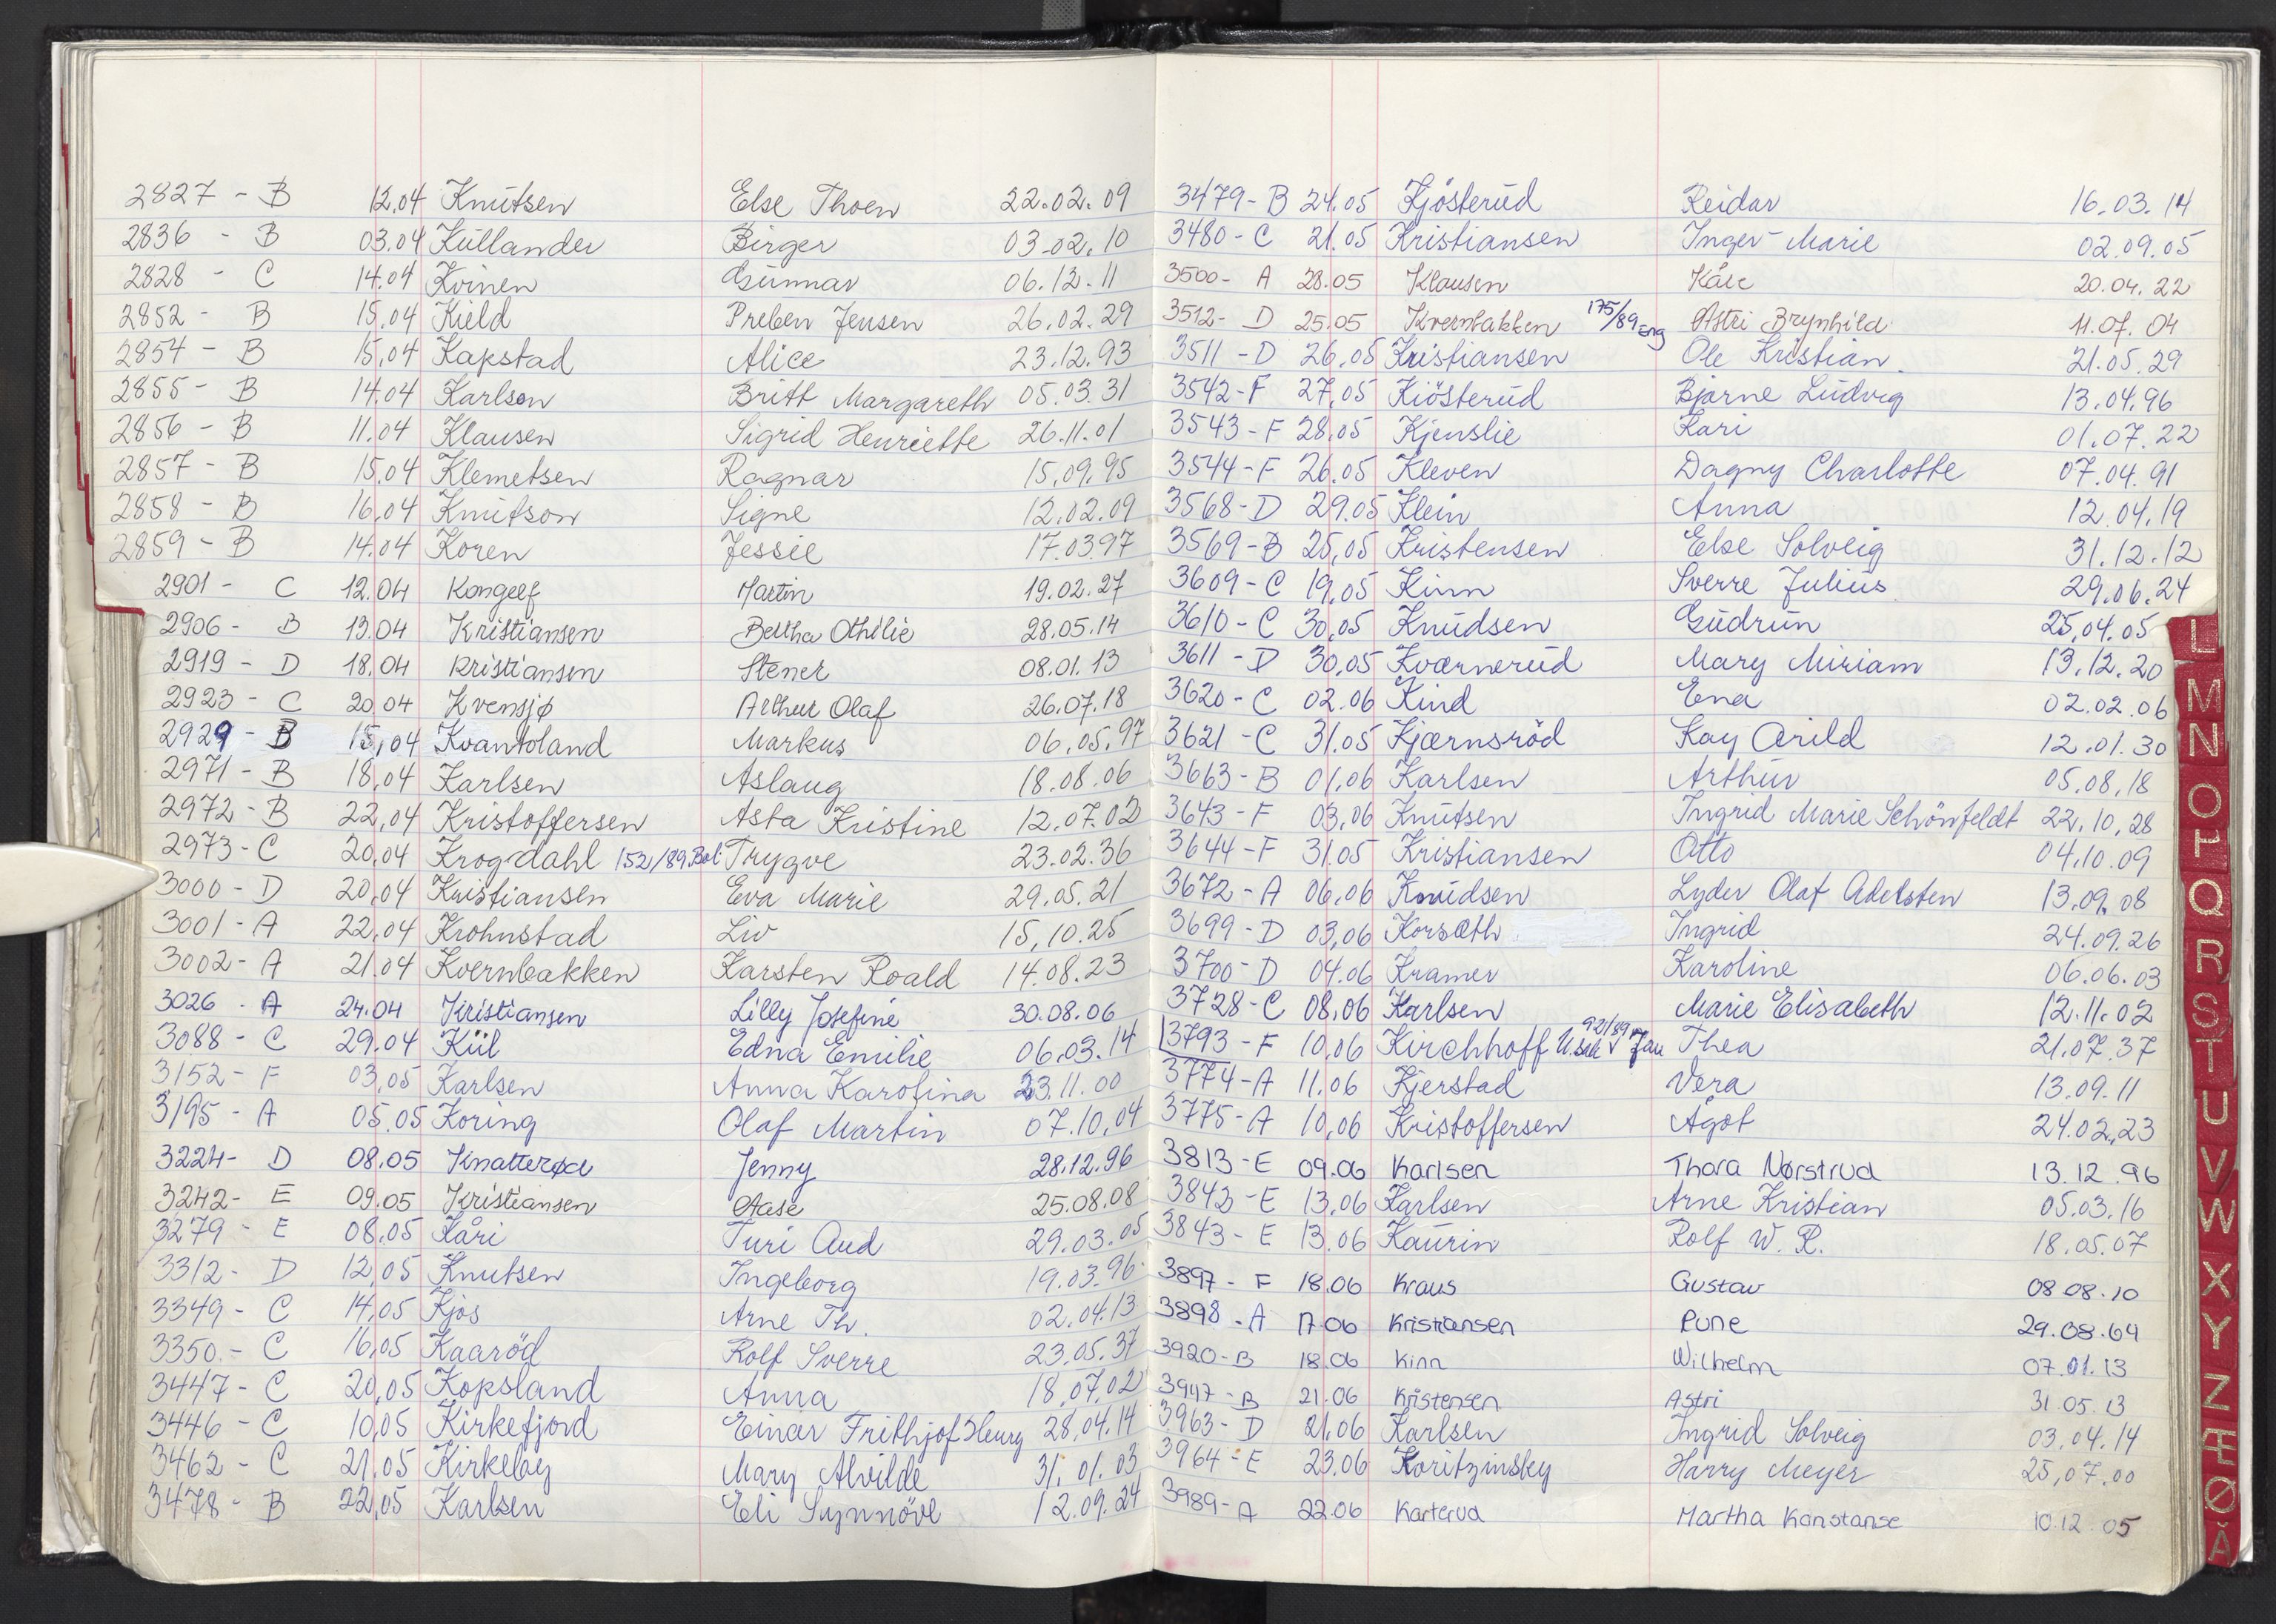 2827 - B 12.04 Knutsen Else Thoen 22.02.09
2836 - B 03.04 Kullander Birger 03.02.10
2828 - C 14.04 Kvinen Gunnar 06.12.11
2852 - B 15.04 Kield Preben Jensen 26.02.29
2854 - B 15.04 Kapstad Alice 23.12.93
2855 - B 14.04 Karlson Britt Margareth 05.03.31
2856 - B 11.04 Klausen Sigrid Henriette 26.11.01
2857 - B 15.04 Klemetsen Ragnar 15.09.95
2858 - B 16.04 Knutson Signe 12.02.09
2859 - B 14.04 Koren Jessie 17.03.97
2901 - C 12.04 Kongelf Martin 19.02.27
2906 - B 13.04 Kristiansen Bertha Othilie 28.05.14
2919 - D 18.04 Kristiansen Stener 08.01.13
2923 - C 20.04 Kvensjø Arthur Olaf 26.07.18
2929 - B 15.04 Kvantoland Markus 06.05.97
2971 - B 18.04 Karlsen Aslaug 18.08.06
2972 - B 22.04 Kristoffersen Asta Kristine 12.07.02
2973 - C 20.04 Krogdahl 152/89 Bol Trygve 23.02.36
3000 - D 20.04 Kristiansen Eva Marie 29.05.21
3001 - A 22.04 Krohnstad Liv 15.10.25
3002 - A 21.04 Kvernbakken Karsten Roald 14.08.23
3026 - A 24.04 Kristiansen Lilly Josefine 30.08.06
3088 - C 29.04 Kül Edna Emilie 06.03.14
3152 - F 03.05 Karlsen Anna Karolina 23.11.00
3195 - A 05.05 Koring Olaf Martin 07.10.04
3224 - D 08.05 Knatterød Jenny 28.12.96
3242 - E 09.05 Kristiansen Aase 25.08.08
3279 - E 08.05 Kåri Turi Aud 29.03.05
3312 - D 12.05 Knutsen Ingeborg 19.03.96
3349 - C 14.05 Kjos Arne Th. 02.04.13
3350 - C 16.05 Kaaröd Rolf Sverre 23.05.37
3447 - C 20.05 Kopsland Anna 18.07.02
3446 - C 10.05 Kirkefjord Einar Frithjof Henry 28.04.14
3462 - C 21.05 Kirkeby Mary Alvilde 31.01.03
3478 - B 22.05 Karlsen Eli Synnöve 12.09.24
3479 - B 24.05 Kjösterud Reidar 16.03.14
3480 - C 21.05 Kristiansen Inger-Marie 02.09.05
3500 - A 28.05 Klausen Kåre 20.04.22
3512 - D 25.05 Kvernbakken 175/89 eng Astri Brynhild 11.07.04
3511 - D 26.05 Kristiansen Ole Kristian 21.05.29
3542 - F 27.05 Kiösterud Bjarne Ludvig 13.04.96
3543 - F 28.05 Kjenslie Kari 01.07.22
3544 - F 26.05 Kleven Dagny Charlotte 07.04.91
3568 - D 29.05 Klein Anna 12.04.19
3569 - B 25.05 Kristensen Else Solveig 31.12.12
3609 - C 19.05 Kinn Sverre Julius 29.06.24
3610 - C 30.05 Knudsen Gudrun 25.04.05
3611 - D 30.05 Kværnerud Mary Miriam 13.12.20
3620 - C 02.06 Kind Ena 02.02.06
3621 - C 31.05 Kjærnsröd Kay Arild 12.01.30
3663 - B 01.06 Karlsen Arthur 05.08.18
3643 - F 03.06 Knutsen Ingrid Marie Schönfeldt 22.10.28
3644 - F 31.05 Kristiansen Otto 04.10.09
3672 - A 06.06 Knudsen Lyder Olaf Adelsten 13.09.08
3699 - D 03.06 Korsæth Ingrid 24.09.26
3700 - D 04.06 Kramer Karoline 06.06.03
3728 - C 08.06 Karlsen Marie Elisabeth 12.11.02
3793 - F 10.06 Kirchhoff 92/89 Thea 21.07.37
3774 - A 11.06 Kjerstad Vera 13.09.11
3775 - A 10.06 Kristoffersen Ågot 24.02.23
3813 - E 09.06 Karlsen Thora Nørstrud 13.12.96
3842 - E 13.06 Karlsen Arne Kristian 05.03.16
3843 - E 13.06 Kaurin Rolf W. R. 18.05.07
3897 - F 18.06 Kraus Gustav 08.08.10
3898 - A 17.06 Kristiansen Rune 29.08.64
3920 - B 18.06 Kinn Wilhelm 07.01.13
3947 - B 21.06 Kristensen Astri 31.05.13
3963 - D 21.06 Karlsen Ingrid Solveig 03.04.14
3964 - E 23.06 Koritzinsky Harry Meyer 25.07.00
3989 - A 22.06 Karterud Martha Konstanse 10.12.05
L
M
N
O
P
Q
R
S
T
U
V
W
X
Y
Z
Æ
Ø
Å